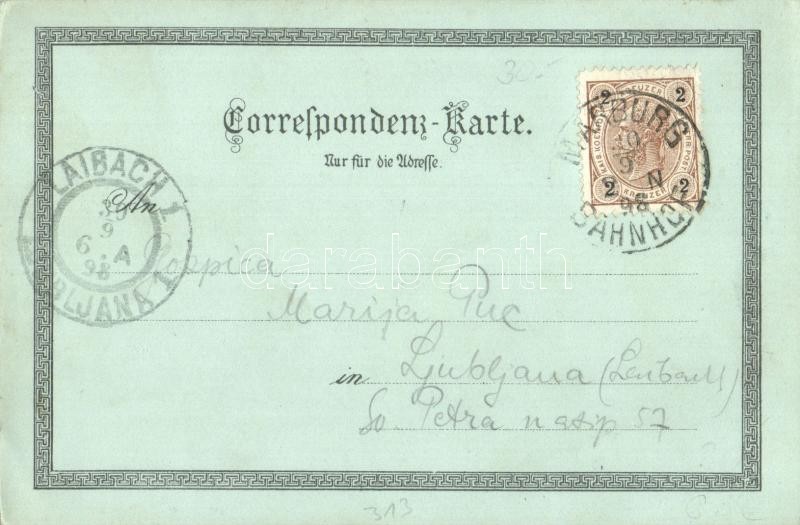 30.-
Correspondenz-Karte.
Nur für die Adresse.
2 2
KREUZER
2 2
KREUZER
MARBURG
9 N
98
BAHNHOF
LAIBACH 1
30
9
6. A
98
LJUBLJANA 1
An
Gospica
darabanth
Marija Puc
in Ljubljana (Laibach)
Sv. Petra nasip 57
313